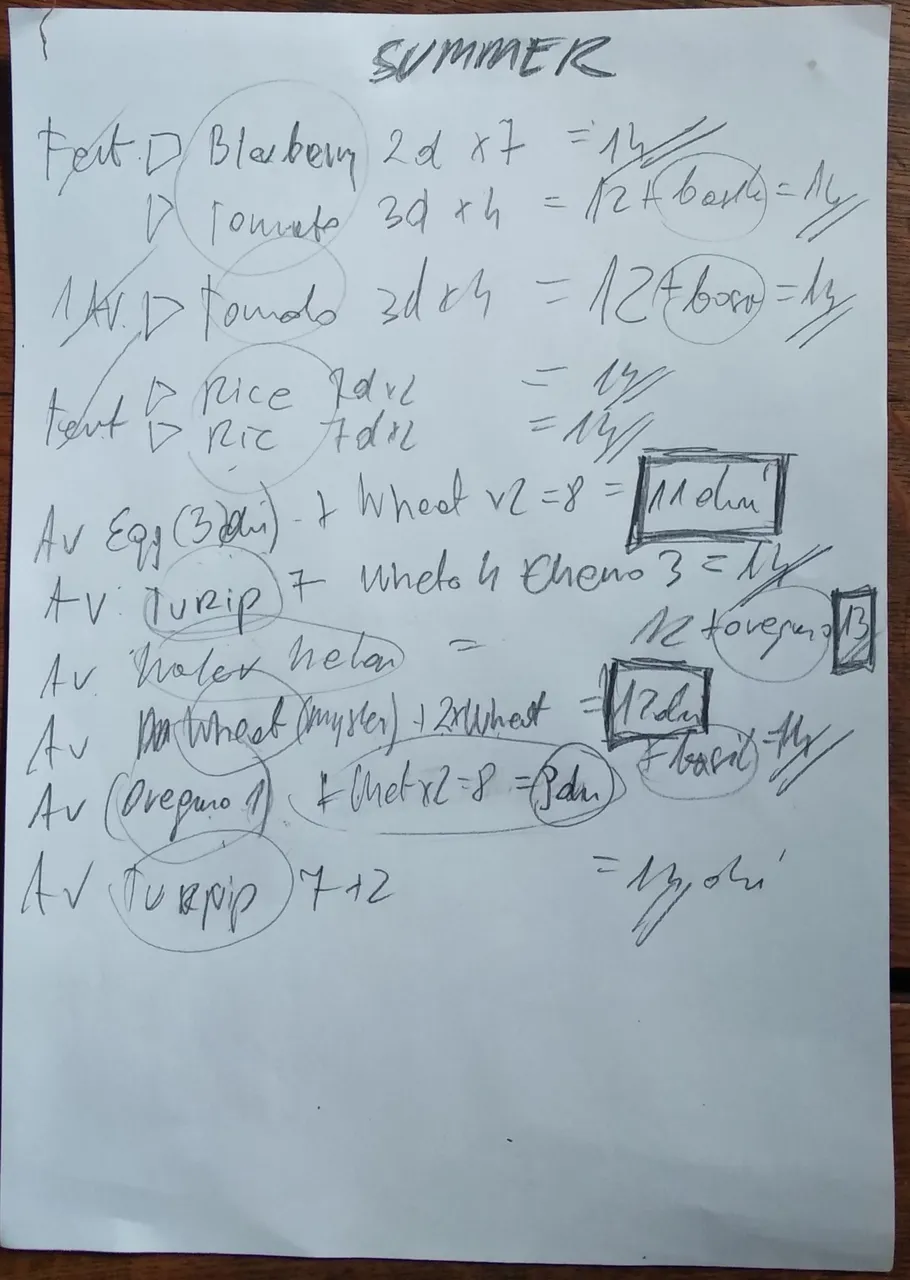 SUMMER
Fert Blueberry 2d x7 = 14
Tomato 3d x4 = 12 + = 14
1 Av. Tomato 3d x4 = 12 + = 14
Fert Rice 7d x2 = 14
Ric 7d x2 = 14
Av Egg (3 dni) + Wheat x2 = 8 = 11 dni
Av Turip 7 4 3 = 14
Av Melon = 12 + oregano 13
Av Wheat (myster) + 2x Wheat = 12 dni
Av (Oregano 1) + x2 = 8 = 9 dni + basil = 14
Av 7 +2 = 14 dni